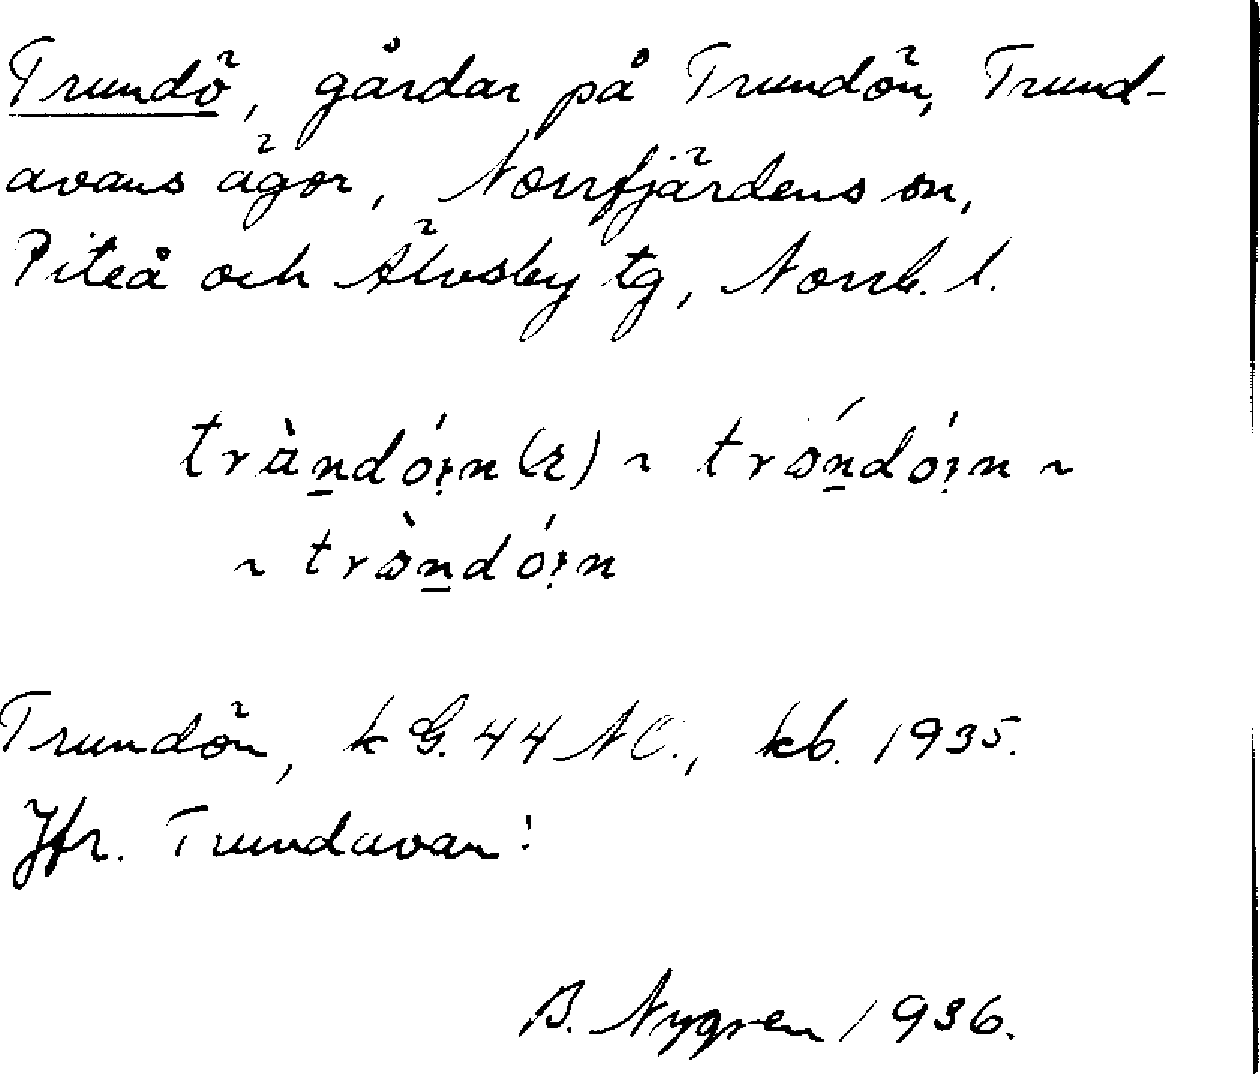 Trundö, gårdar på Trundön, Trund-
avans ägor, Norrfjärdens sn,
Piteå och Älvsby tg, Norrb. l.
tràndó:n(r) ~ tróndó:n ~
~ tròndó:n
Trundön, k G. 44 NO., kb. 1935.
Jfr. Trundavan!
B. Nygren 1936.